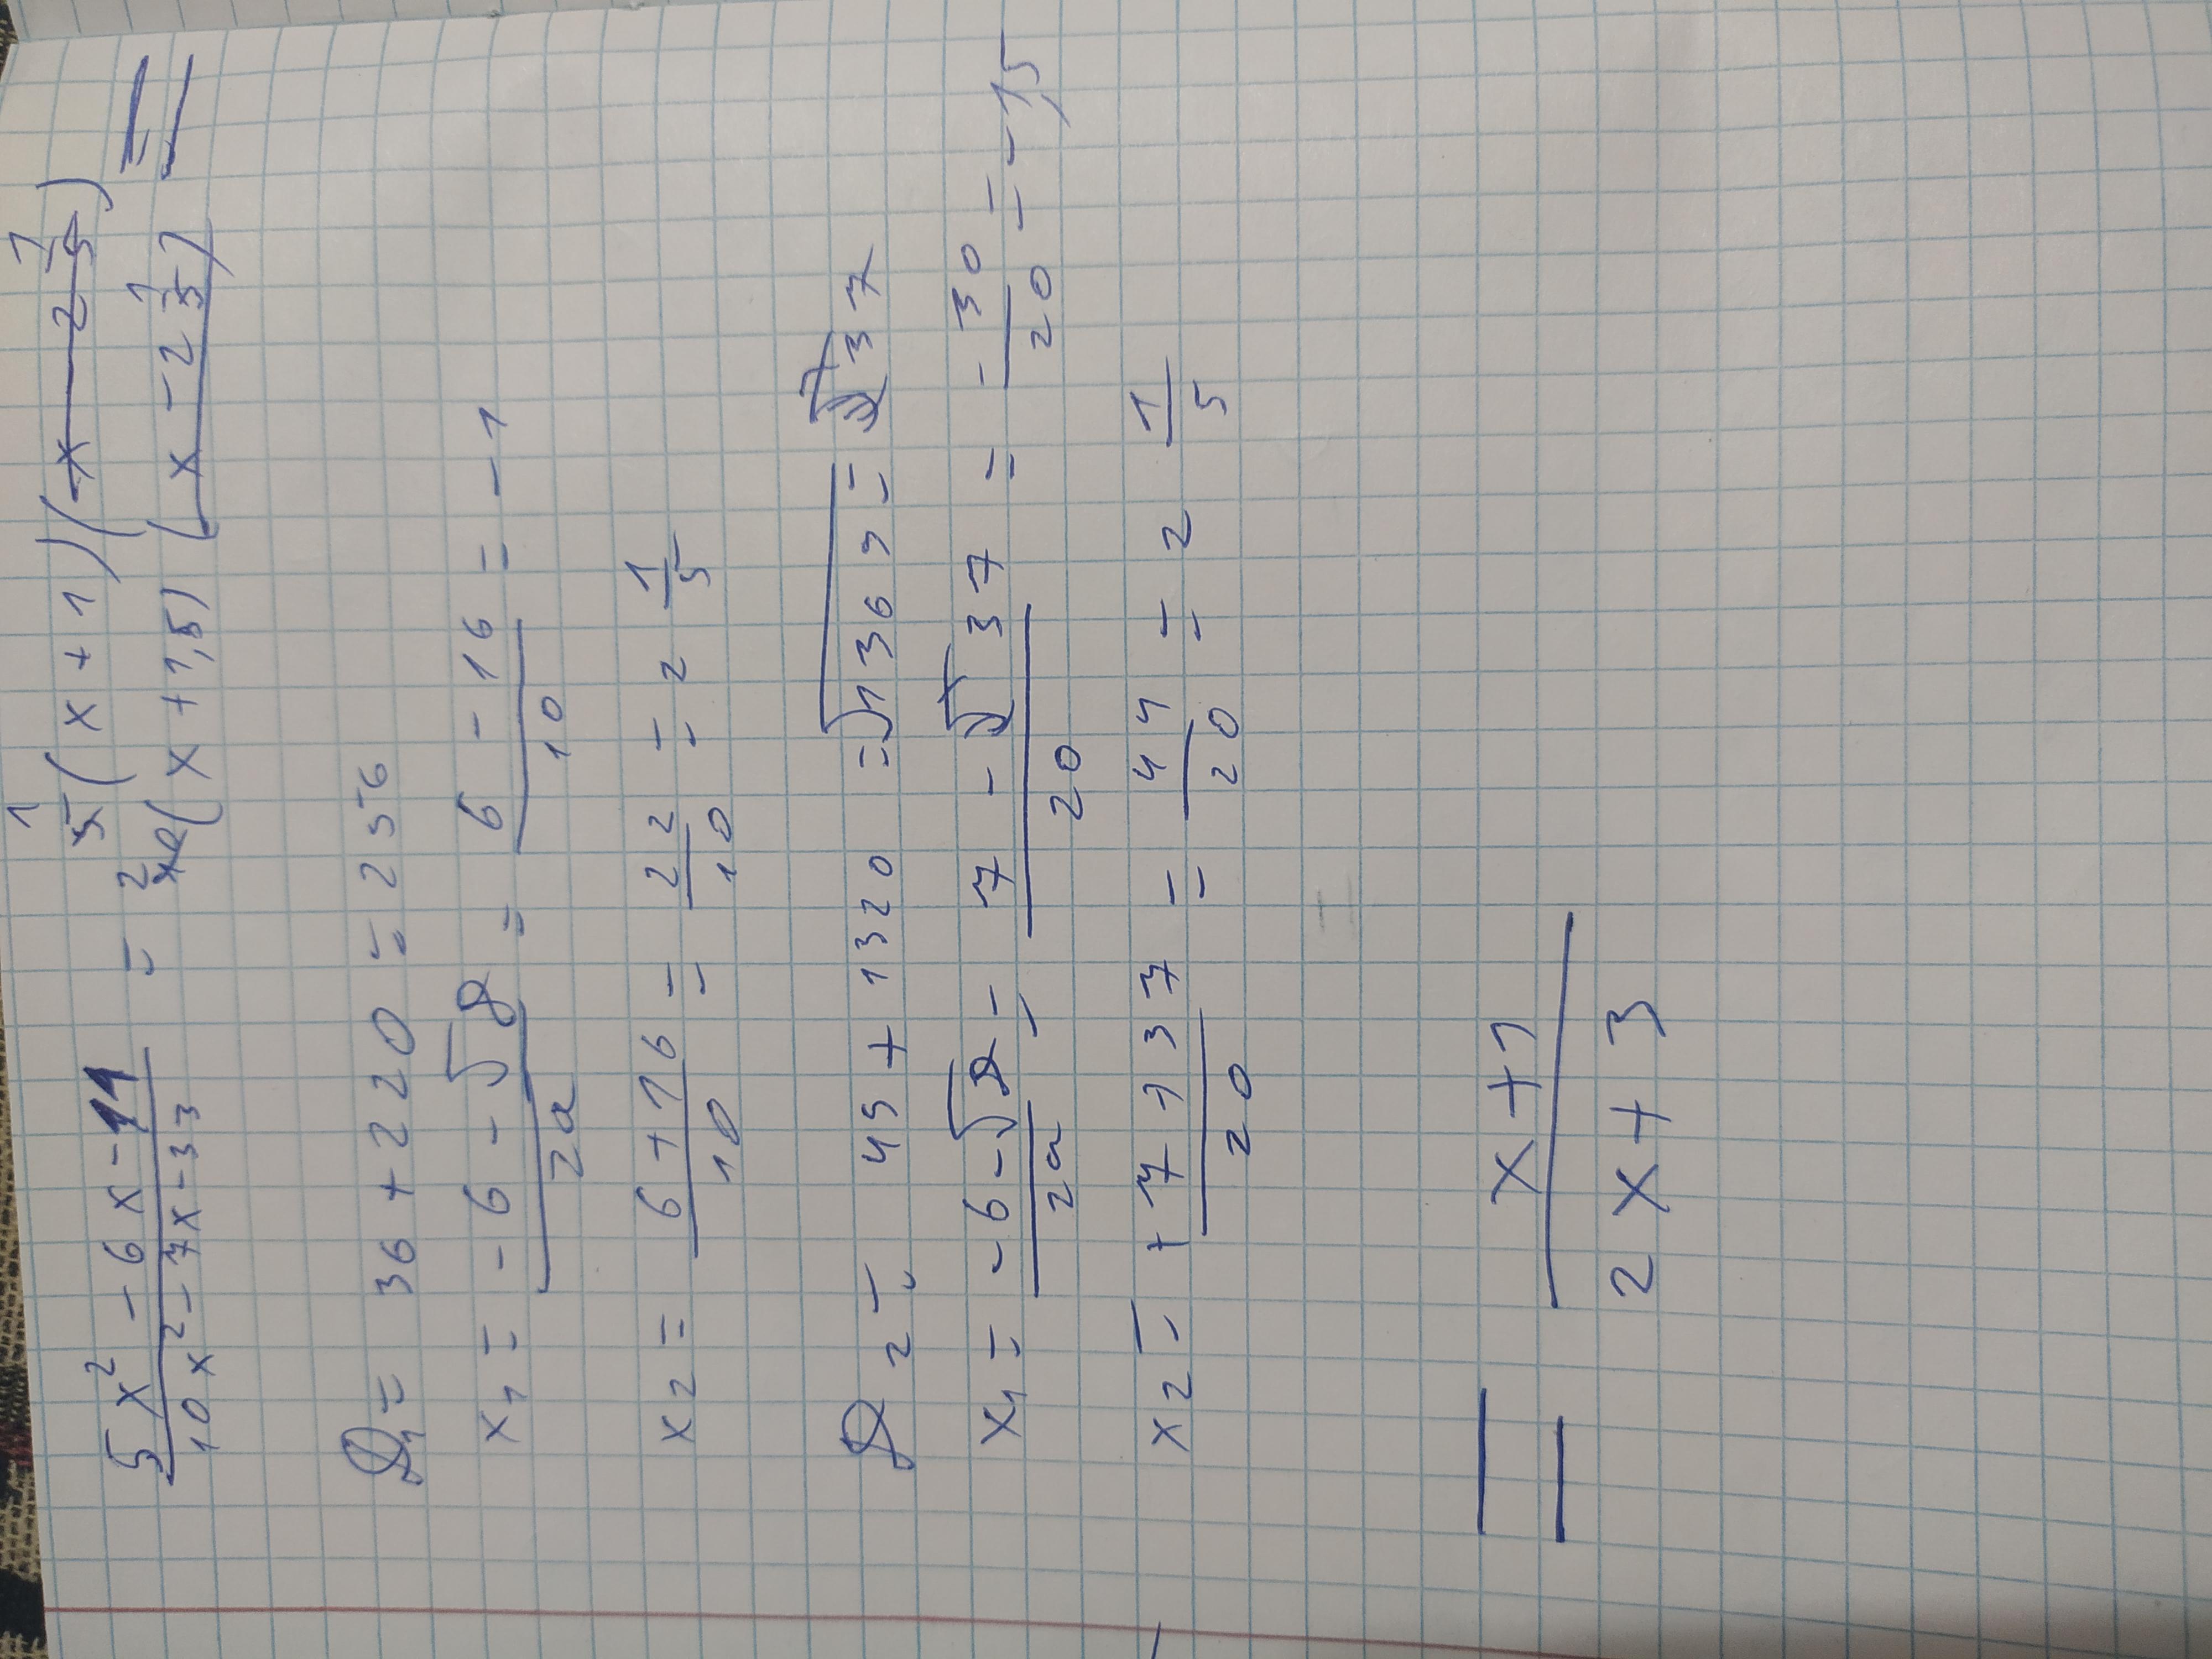 5x² - 6x - 11 / 10x² - 7x - 33 = 5 1 (x + 1)(x - 2 1/5) / 10 2 (x + 1,5)(x - 2 1/5) =
D₁ = 36 + 220 = 256
x₁ = -6 - √D / 2a = 6 - 16 / 10 = -1
x₂ = 6 + 16 / 10 = 22 / 10 = 2 1/5
D₂ = 49 + 1320 = √1369 = 37
x₁ = -6 - √D / 2a = 7 - 37 / 20 = -30 / 20 = -1,5
x₂ = +7 + 37 / 20 = 44 / 20 = 2 1/5
= x + 1 / 2x + 3